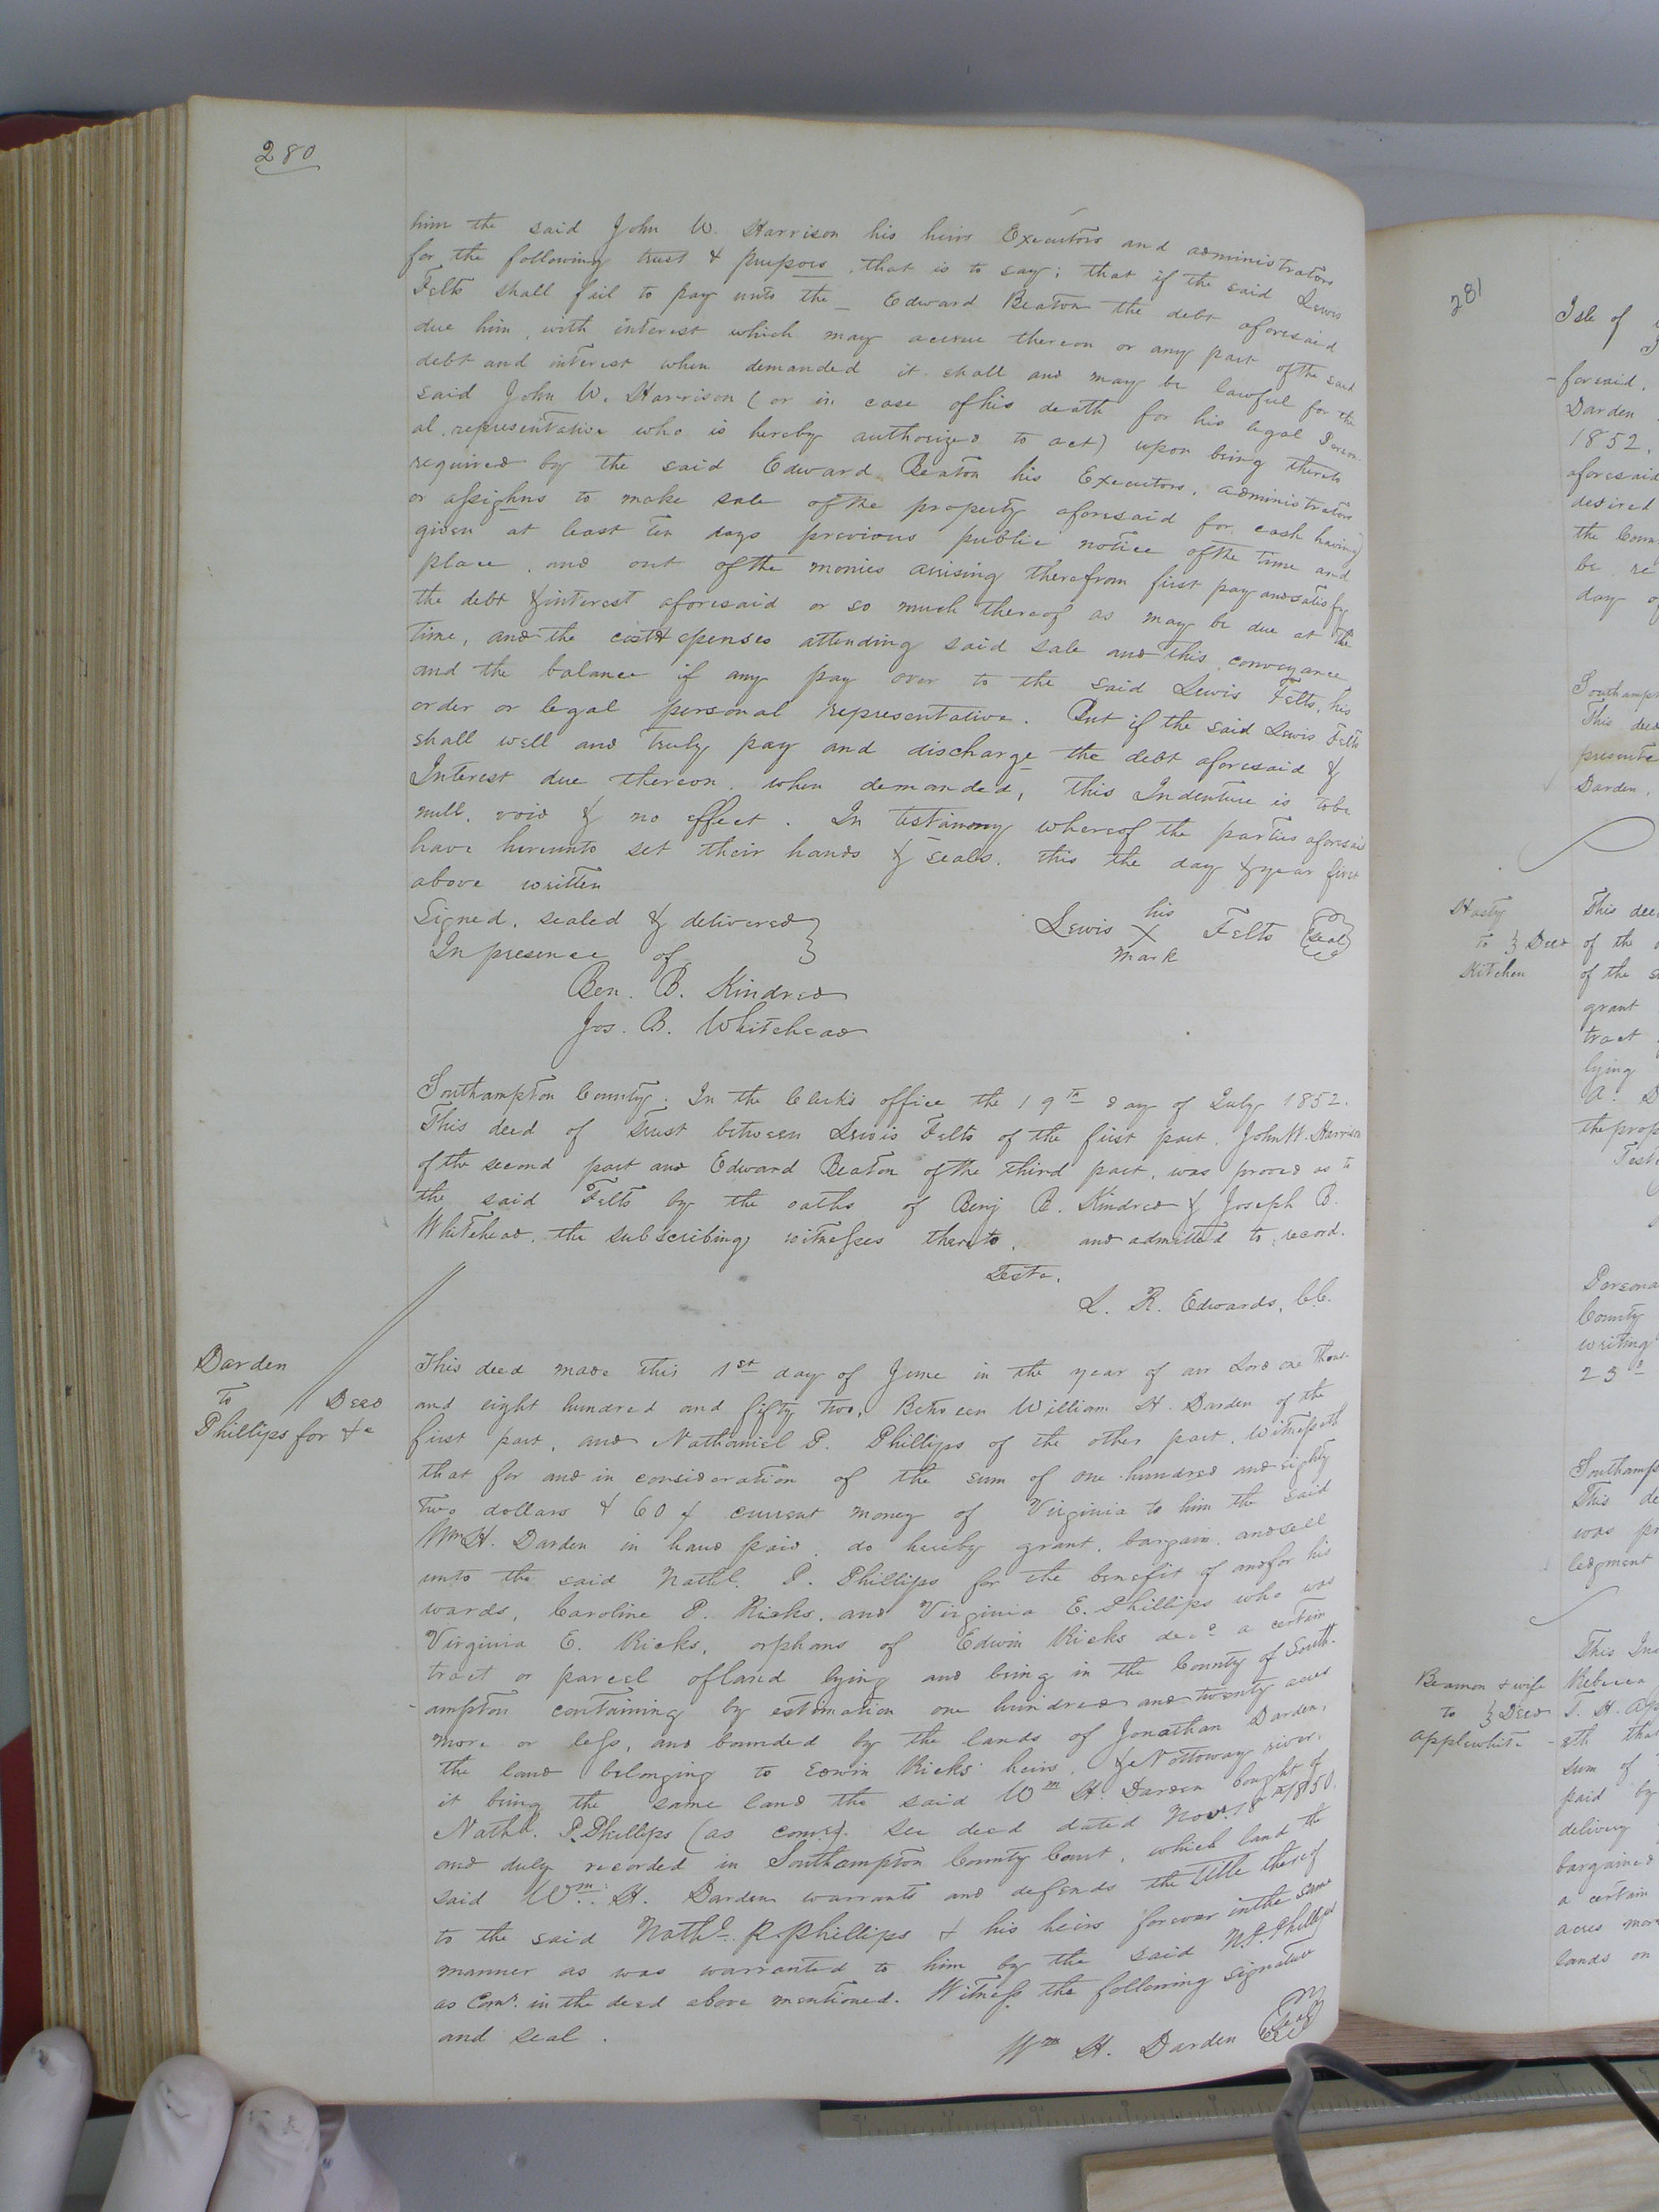 280
him the said John W. Harrison his heirs Executors and administrators
for the following trust & purposes, that is to say; that if the said Lewis
Felts shall fail to pay unto the _ Edward Beaton the debt aforesaid
due him, with interest which may accrue thereon or any part of the said
debt and interest when demanded it shall and may be lawful for the
said John W. Harrison (or in case of his death for his legal Person-
al representative who is hereby authorized to act) upon being thereto
required by the said Edward Beaton his Executors, administrators
or assighns to make sale of the property aforesaid for cash having
given at least ten days previous public notice of the time and
place, and out of the monies arrising therefrom first pay and satisfy
the debt & interest aforesaid or so much thereof as may be due at the
time, and the cost & epenses attending said sale and this conveyance
and the balance if any pay over to the said Lewis Felts, his
order or legal personal representative. But if the said Lewis Felts
shall well and truly pay and discharge the debt aforesaid &
Interest due thereon, when demanded, this Indenture is to be
null, void & no effect. In testimony whereof the parties aforesaid
have hereunto set their hands & seals, this the day & year first
above written
Signed, sealed & delivered } Lewis his X mark Felts (Seal)
In presence of
Ben. B. Kindred
Jos. B. Whitehead
Southampton County. In the Clerk's office the 19th day of July 1852.
This deed of Trust between Lewis Felts of the first part, John W. Harrison
of the second part and Edward Beaton of the third part, was proved as to
the said Felts by the oaths of Benj B. Kindred & Joseph B.
Whitehead, the subscribing witnesses thereto, and admitted to record.
Teste,
L. R. Edwards, C.C.
Darden
to Deed
Phillips for &c
This deed made this 1st day of June in the year of our Lord one thous-
and eight hundred and fifty two, Between William H. Darden of the
first part, and Nathaniel P. Phillips of the other part, witnesseth
that for and in consideration of the sum of one hundred and eighty
two dollars & 60 ¢ current money of Virginia to him the said
Wm H. Darden in hand paid, do hereby grant, bargain, and sell
unto the said Nathl. P. Phillips for the benefit of and for his
wards, Caroline P. Ricks, and Virginia E. Phillips who was
Virginia E. Ricks, orphans of Edwin Ricks decd a certain
tract or parcel of land lying and being in the County of South-
ampton containing by estimation one hundred and twenty acres
more or less, and bounded by the lands of Jonathan Darden,
the land belonging to Edwin Ricks' heirs, & Nottoway river,
it being the same land the said Wm H. Darden bought of
Nathl. P. Phillips (as comr.) see deed dated Novr. 18th 1850.
and duly recorded in Southampton County Court, which land the
said Wm. H. Darden warrants and defends the title thereof
to the said Nathl. P. Phillips & his heirs forever in the same
manner as was warranted to him by the said N. P. Phillips
as Comr. in the deed above mentioned. Witness the following signature
and seal.
Wm H. Darden (Seal)
281
Isle of
-foresaid,
Darden
1852,
aforesaid
desired
the Coun
be re
day of
Southamp
This deed
presente
Darden,
Hasty
to } Deed
Kitchen
This dee
of the
of the s
grant
tract
lying
the prop
Test
Persona
County
writing
25d
Southamp
This de
was pr
ledgment
Beamon & wife
to } Deed
Applewhite
This Ind
Rebecca
T. H. Ap
-eth that
sum of
paid by
delivery
bargained
a certain
acres mor
lands on